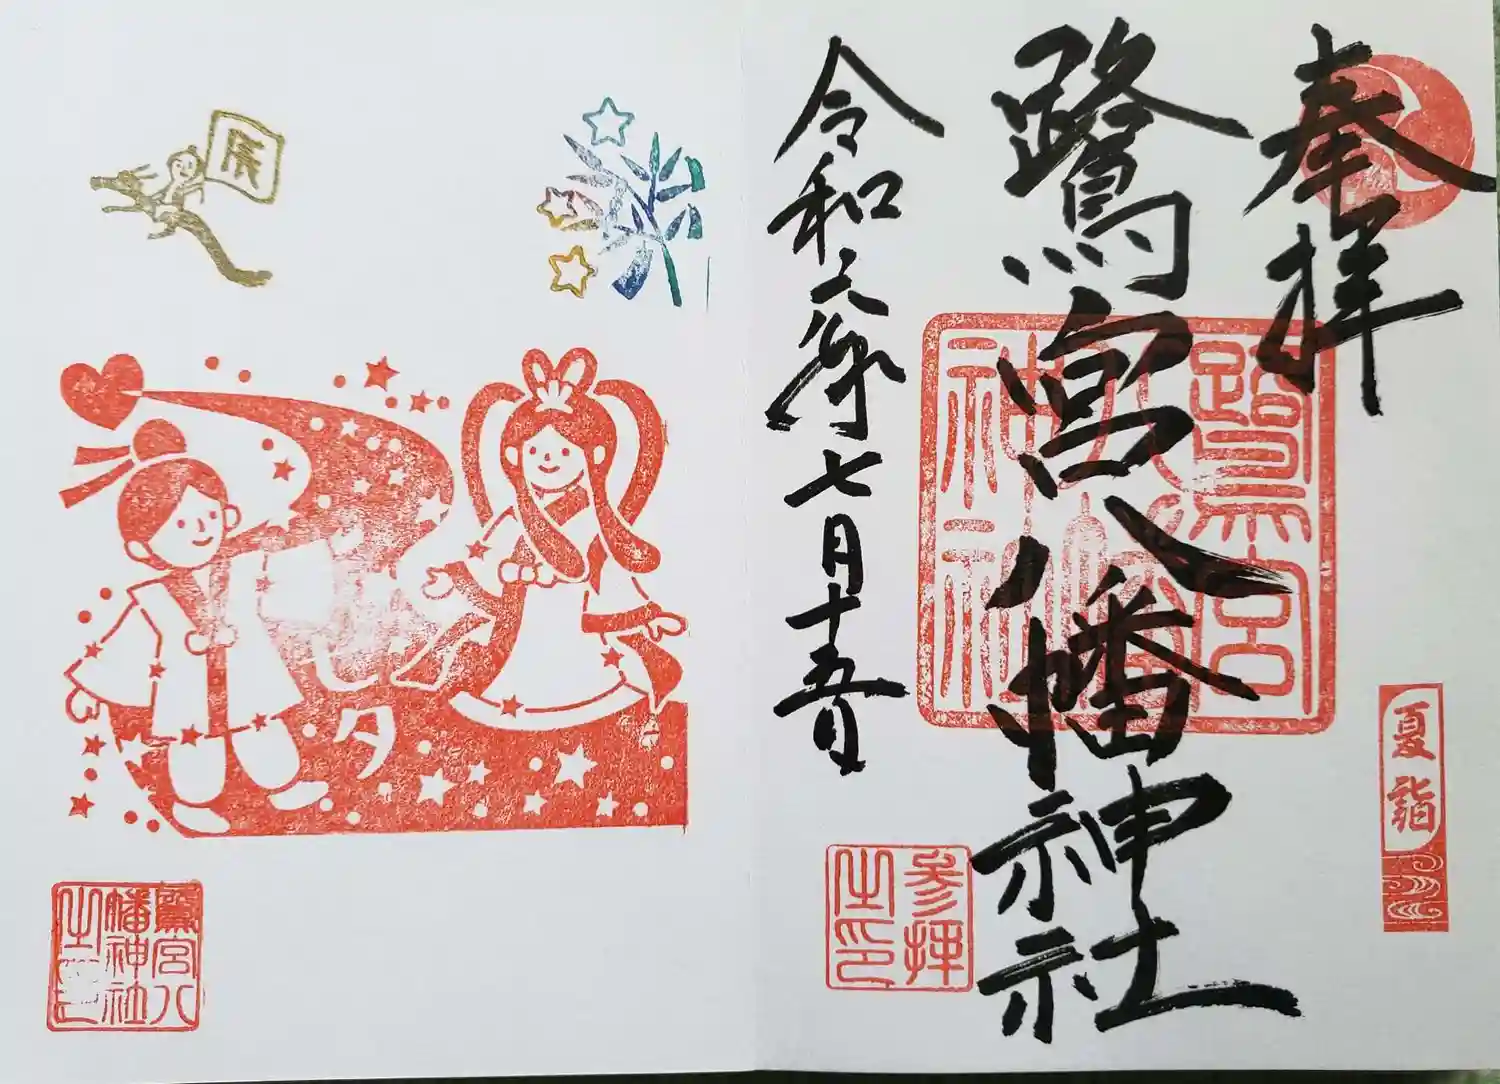 奉拝
鷺宮八幡神社
令和六年七月十五日
夏詣
鷺宮
八幡
神社
参拝
之印
辰
夕
鷺宮八
幡神社
之印